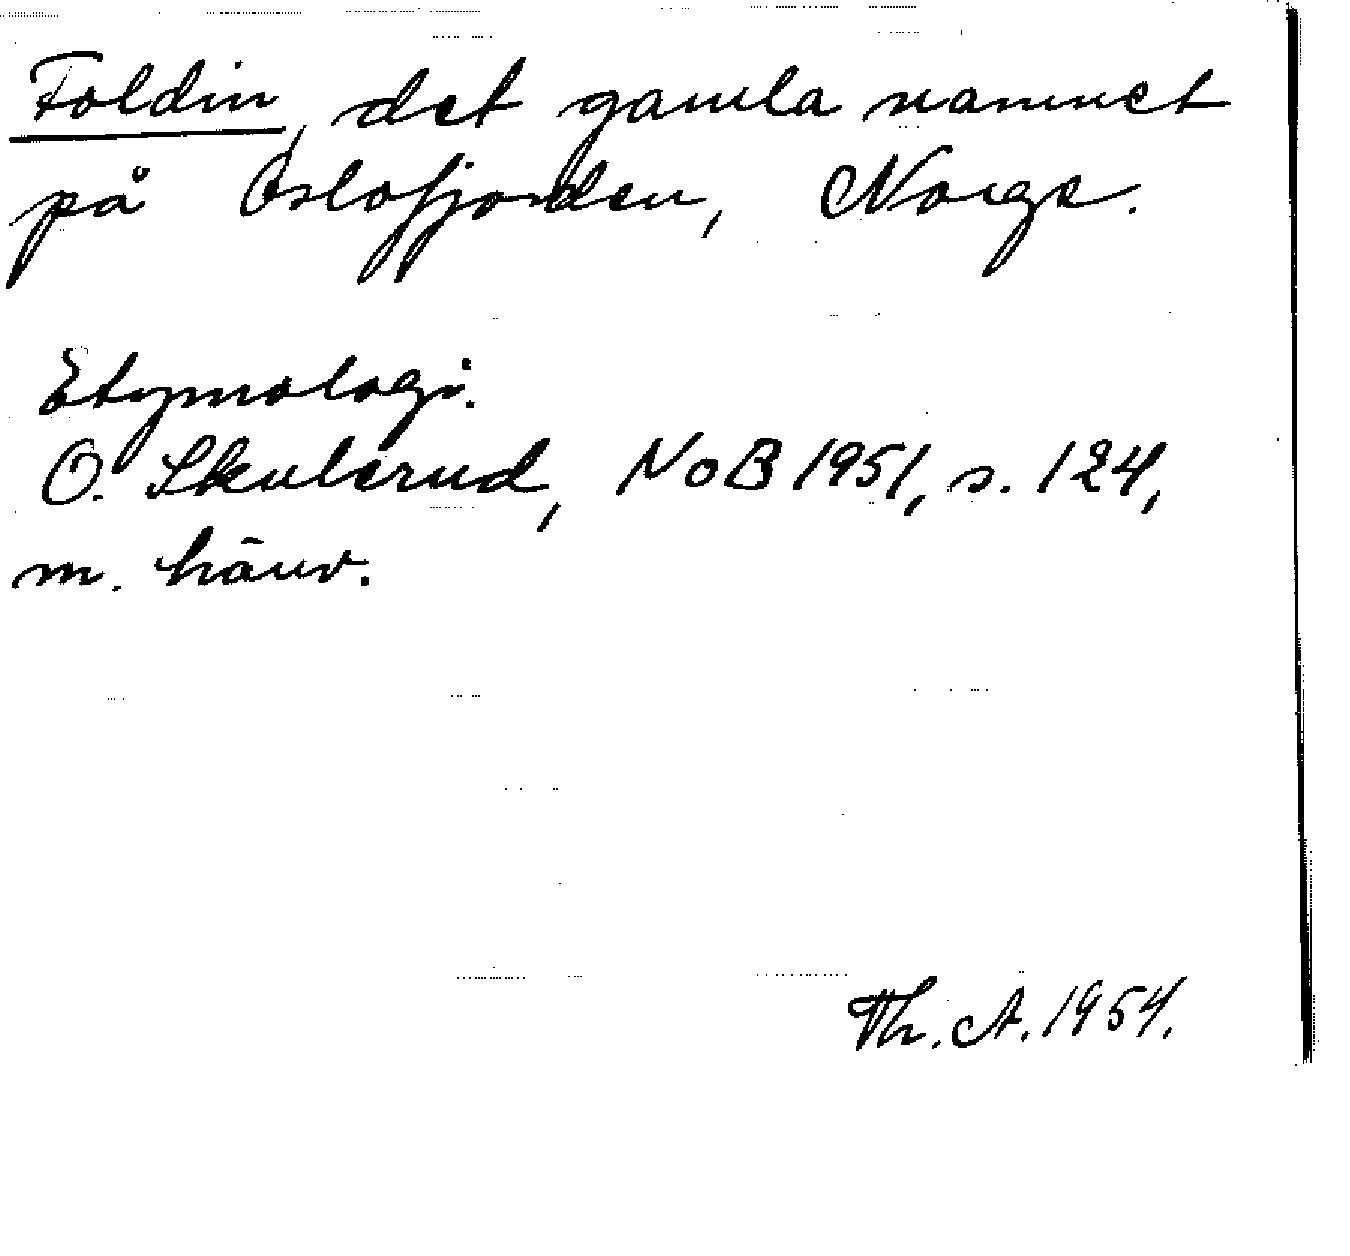 Foldin, det gamla namnet
på Oslofjorden, Norge.
Etymologi.
O. Skulerud, NoB 1951, s. 124,
m. hänv.
Th. A. 1954.